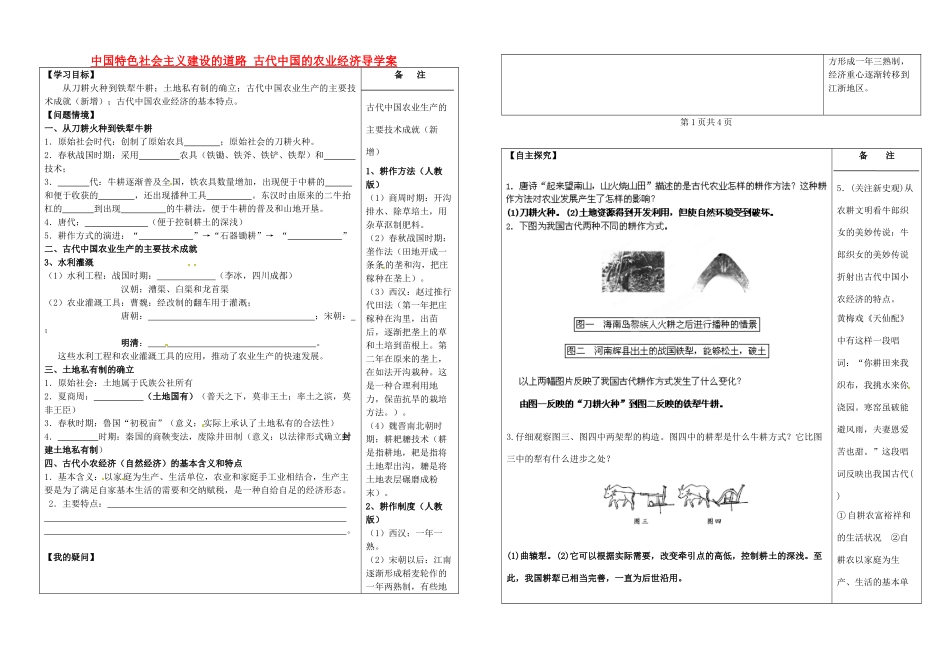 中国特色社会主义建设的道路 古代中国的农业经济导学案
【学习目标】
从刀耕火种到铁犁牛耕；土地私有制的确立；古代中国农业生产的主要技
术成就（新增）；古代中国农业经济的基本特点。
【问题情境】
一、从刀耕火种到铁犁牛耕
1．原始社会时代；创制了原始农具______；原始社会的刀耕火种。
2．春秋战国时期；采用_______农具（铁锄、铁斧、铁铲、铁犁）和_____
技术；
3．_____代：牛耕逐渐普及全国，铁农具数量增加，出现便于中耕的____
和便于收获的______，还出现播种工具________。东汉时由原来的二牛抬
杠的_____到出现________的牛耕法，便于牛耕的普及和山地开垦。
4．唐代：___________（便于控制耕土的深浅）
5．耕作方式的演进："_________"→"石器锄耕"→ "_________"
二、古代中国农业生产的主要技术成就
3、水利灌溉
（1）水利工程：战国时期：__________（李冰，四川成都）
汉朝：漕渠、白渠和龙首渠
（2）农业灌溉工具：曹魏：经改制的翻车用于灌溉；
唐朝：____________________________；宋朝：_
；
明清：____________________________。
这些水利工程和农业灌溉工具的应用，推动了农业生产的快速发展。
三、土地私有制的确立
1．原始社会：土地属于氏族公社所有
2．夏商周：________（土地国有）（普天之下，莫非王土；率土之滨，莫
非王臣）
3．春秋时期：鲁国"初税亩"（意义：实际上承认了土地私有的合法性）
4．_______时期：秦国的商鞅变法，废除井田制（意义：以法律形式确立封
建土地私有制）
四、古代小农经济（自然经济）的基本含义和特点
1．基本含义：以家庭为生产、生活单位，农业和家庭手工业相结合，生产主
要是为了满足自家基本生活的需要和交纳赋税，是一种自给自足的经济形态。
2．主要特点：________________________________________
____________________________________________________
____________________________________________________。
【我的疑问】
备 注
古代中国农业生产的
主要技术成就（新
增）
1、耕作方法（人教
版）
（1）商周时期：开沟
排水、除草培土，用
杂草沤制肥料。
（2）春秋战国时期：
垄作法（田地开成一
条条的垄和沟，把庄
稼种在垄上）。
（3）西汉：赵过推行
代田法（第一年把庄
稼种在沟里，出苗
后，逐渐把垄上的草
和土培到苗根上。第
二年在原来的垄上，
在如法开沟栽种。这
是一种合理利用地
力，保苗抗旱的栽培
方法。）。
（4）魏晋南北朝时
期：耕耙耱技术（耕
是指耕地，耙是指将
土地犁出沟，耱是将
土地表层碾磨成粉
末）。
2、耕作制度（人教
版）
（1）西汉：一年一
熟。
（2）宋朝以后：江南
逐渐形成稻麦轮作的
一年两熟制，有些地
方形成一年三熟制，
经济重心逐渐转移到
江浙地区。
第 1 页共 4 页
【自主探究】
1．唐诗"起来望南山，山火烧山田"描述的是古代农业怎样的耕作方法？这种耕
作方法对农业发展产生了怎样的影响？
(1)刀耕火种。(2)土地资源得到开发利用，但使自然环境受到破坏。
2．下图为我国古代两种不同的耕作方式。
图一 海南岛黎族人火耕之后进行播种的情景
图二 河南辉县出土的战国铁犁，能够松土，破土
以上两幅图片反映了我国古代耕作方式发生了什么变化？
由图一反映的"刀耕火种"到图二反映的铁犁牛耕。
3.仔细观察图三、图四中两架犁的构造。图四中的耕犁是什么牛耕方式？它比图
三中的犁有什么进步之处？
图 三 图 四
(1)曲辕犁。(2)它可以根据实际需要，改变牵引点的高低，控制耕土的深浅。至
此，我国耕犁已相当完善，一直为后世沿用。
备 注
5．(关注新史观)从
农耕文明看牛郎织
女的美妙传说；牛
郎织女的美妙传说
折射出古代中国小
农经济的特点。
黄梅戏《天仙配》
中有这样一段唱
词："你耕田来我
织布，我挑水来你
浇园。寒窑虽破能
避风雨，夫妻恩爱
苦也甜。"这段唱
词反映出我国古代(
)
①自耕农富裕祥和
的生活状况 ②自
耕农以家庭为生
产、生活的基本单